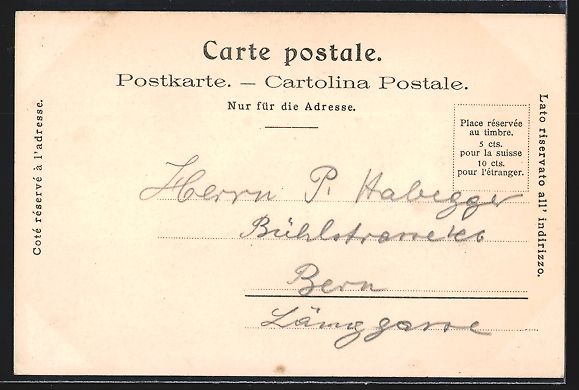 Carte postale.
Postkarte. — Cartolina Postale.
Nur für die Adresse.
Coté réservé à l'adresse.
Place réservée
au timbre.
5 cts.
pour la suisse
10 cts.
pour l'étranger.
Lato riservato all' indirizzo.
Herrn P. Habegger
Bühlstrasse
Bern
Länggasse